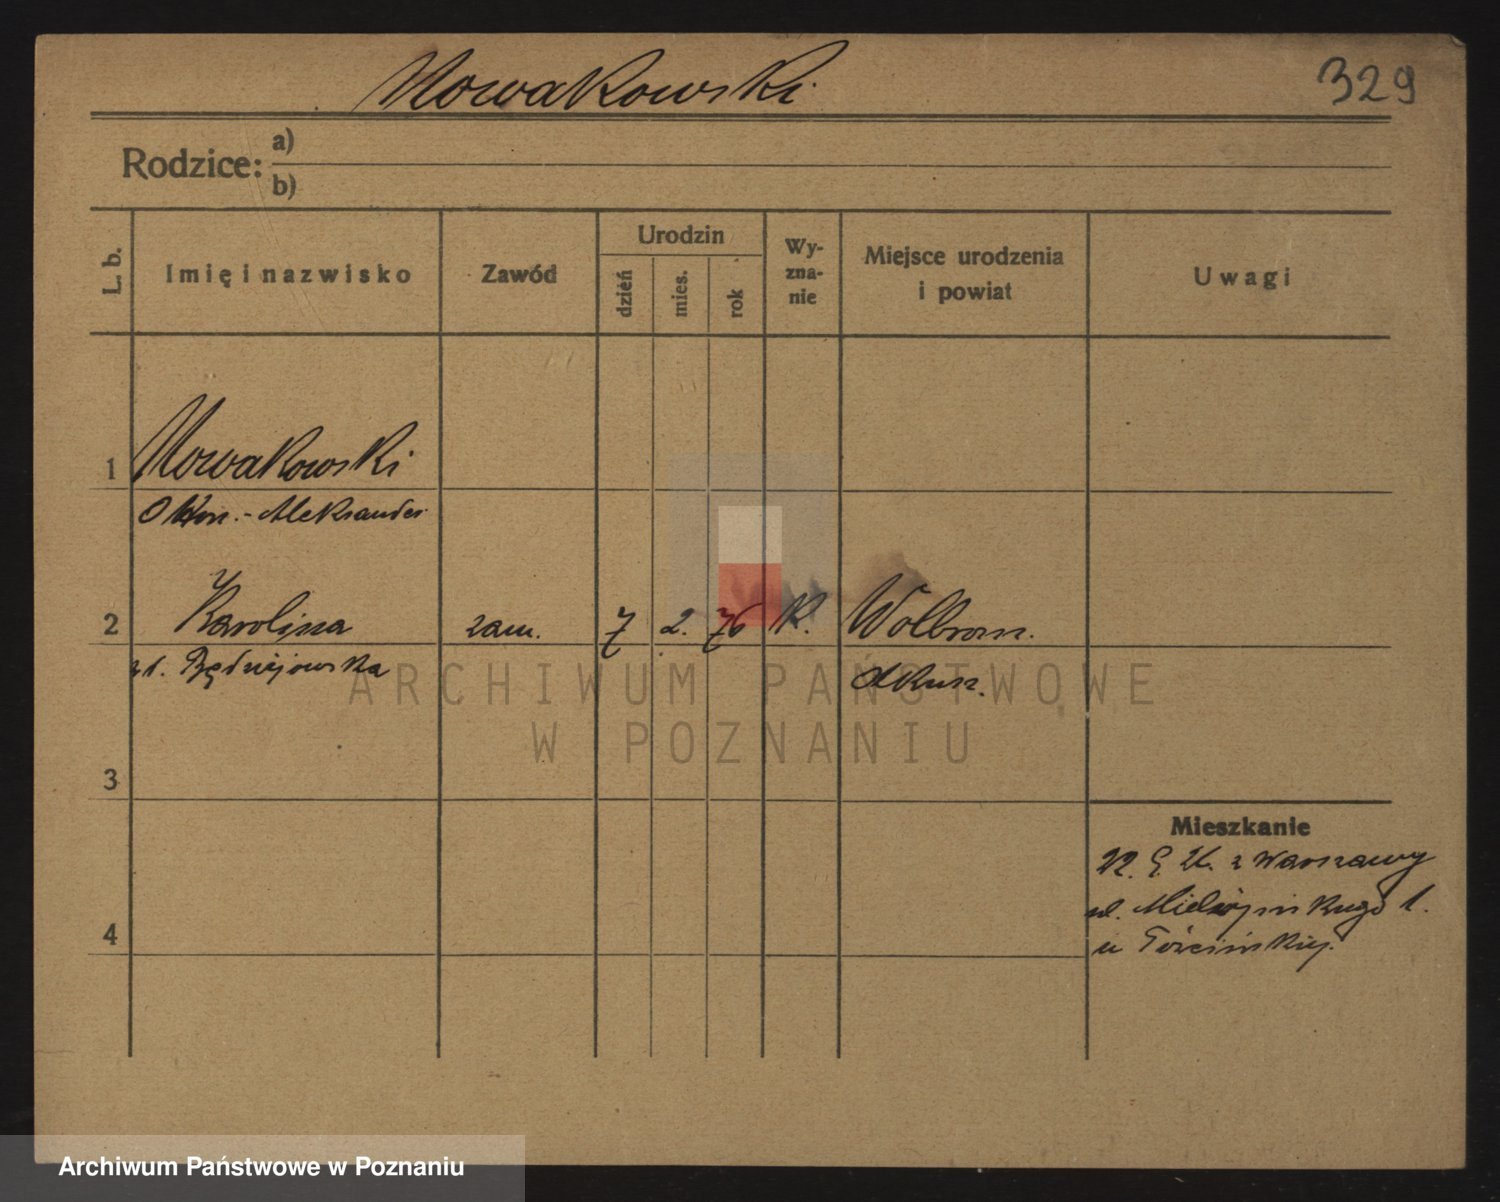 Nowakowski
329
Rodzice: a)
b)
L. b.
Imię i nazwisko
Zawód
Urodzin
dzień
mies.
rok
Wy-
zna-
nie
Miejsce urodzenia
i powiat
Uwagi
1 Nowakowski
Aleksander
2 Karolina zam. 7 2. 76 K. Wolbrom.
Olkusz.
3
Mieszkanie
22. z Warszawy
ul. 1.
u
4
ARCHIWUM PAŃSTWOWE
W POZNANIU
Archiwum Państwowe w Poznaniu